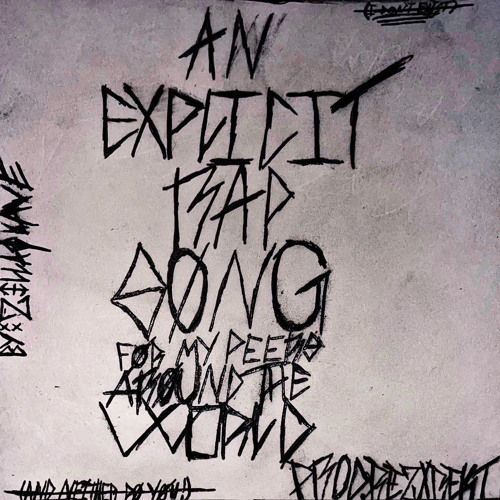 (I DON'T EXIST)
AN
EXPLICIT
RAP
SØNG
FØR MY PEEPS
AROUND THE
WORLD
BY:
(AND NEITHER DO YOU.)
PROD.